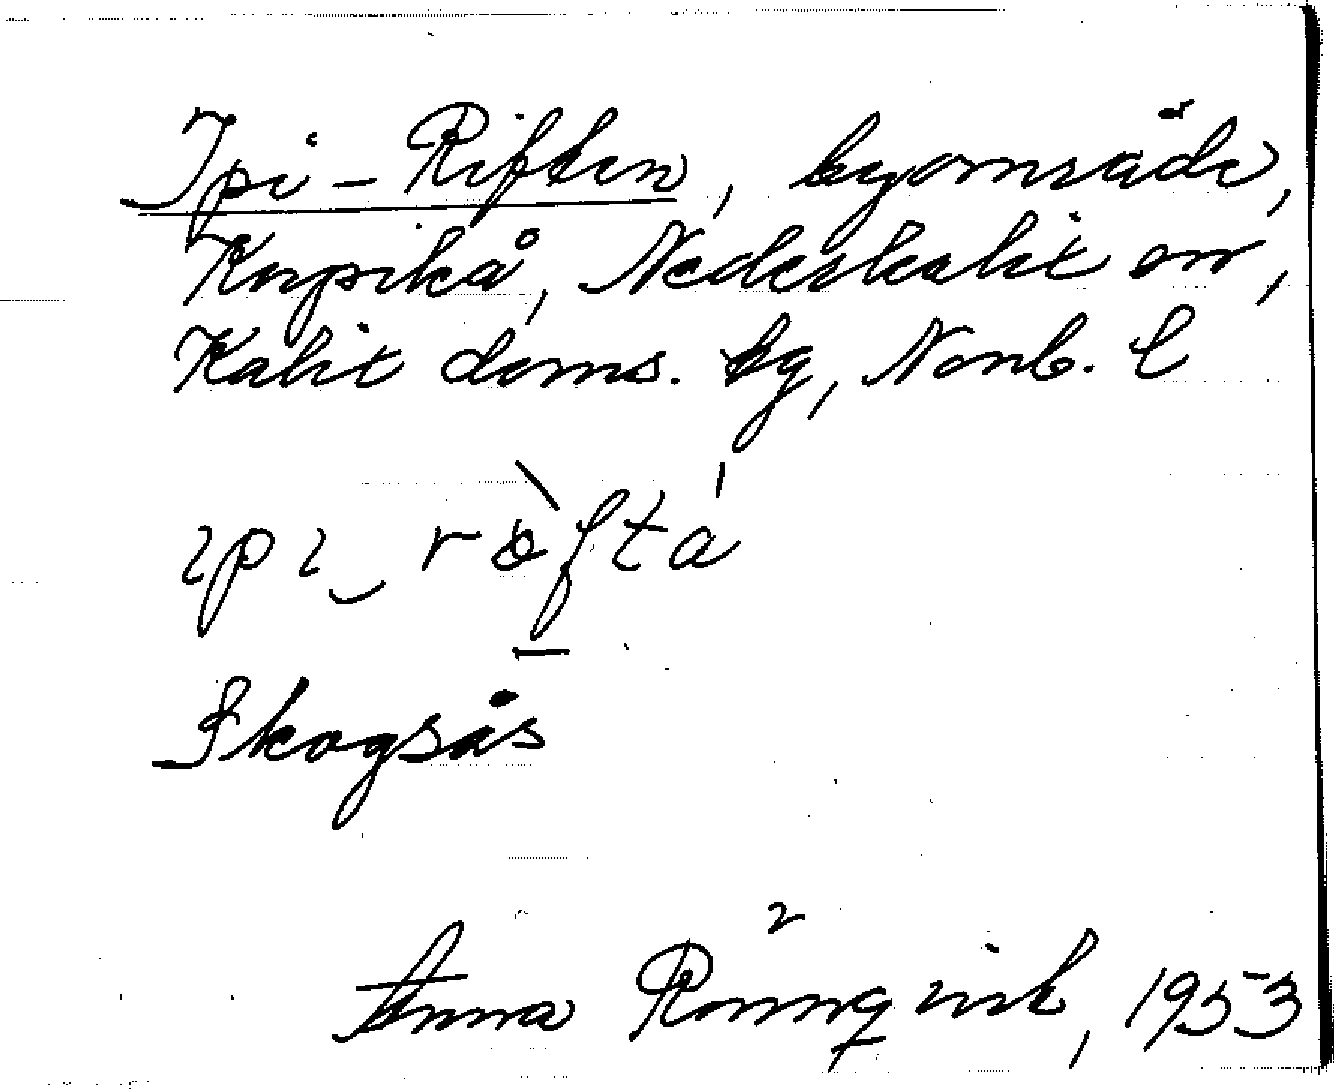 Ipi-Riften, byområde,
Korpikå, Nederkalix sn,
Kalix doms. bg, Norrb. l
ɩpɩ‿rɵ̀ftá
Skogsås
Anna Rönnqvist, 1953